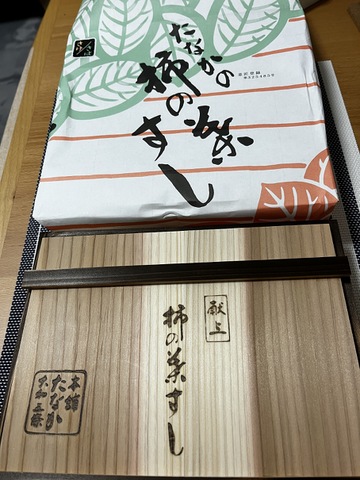 たなかの
柿の葉
すし
献上
柿の葉すし
本舗
たなか
大和五條